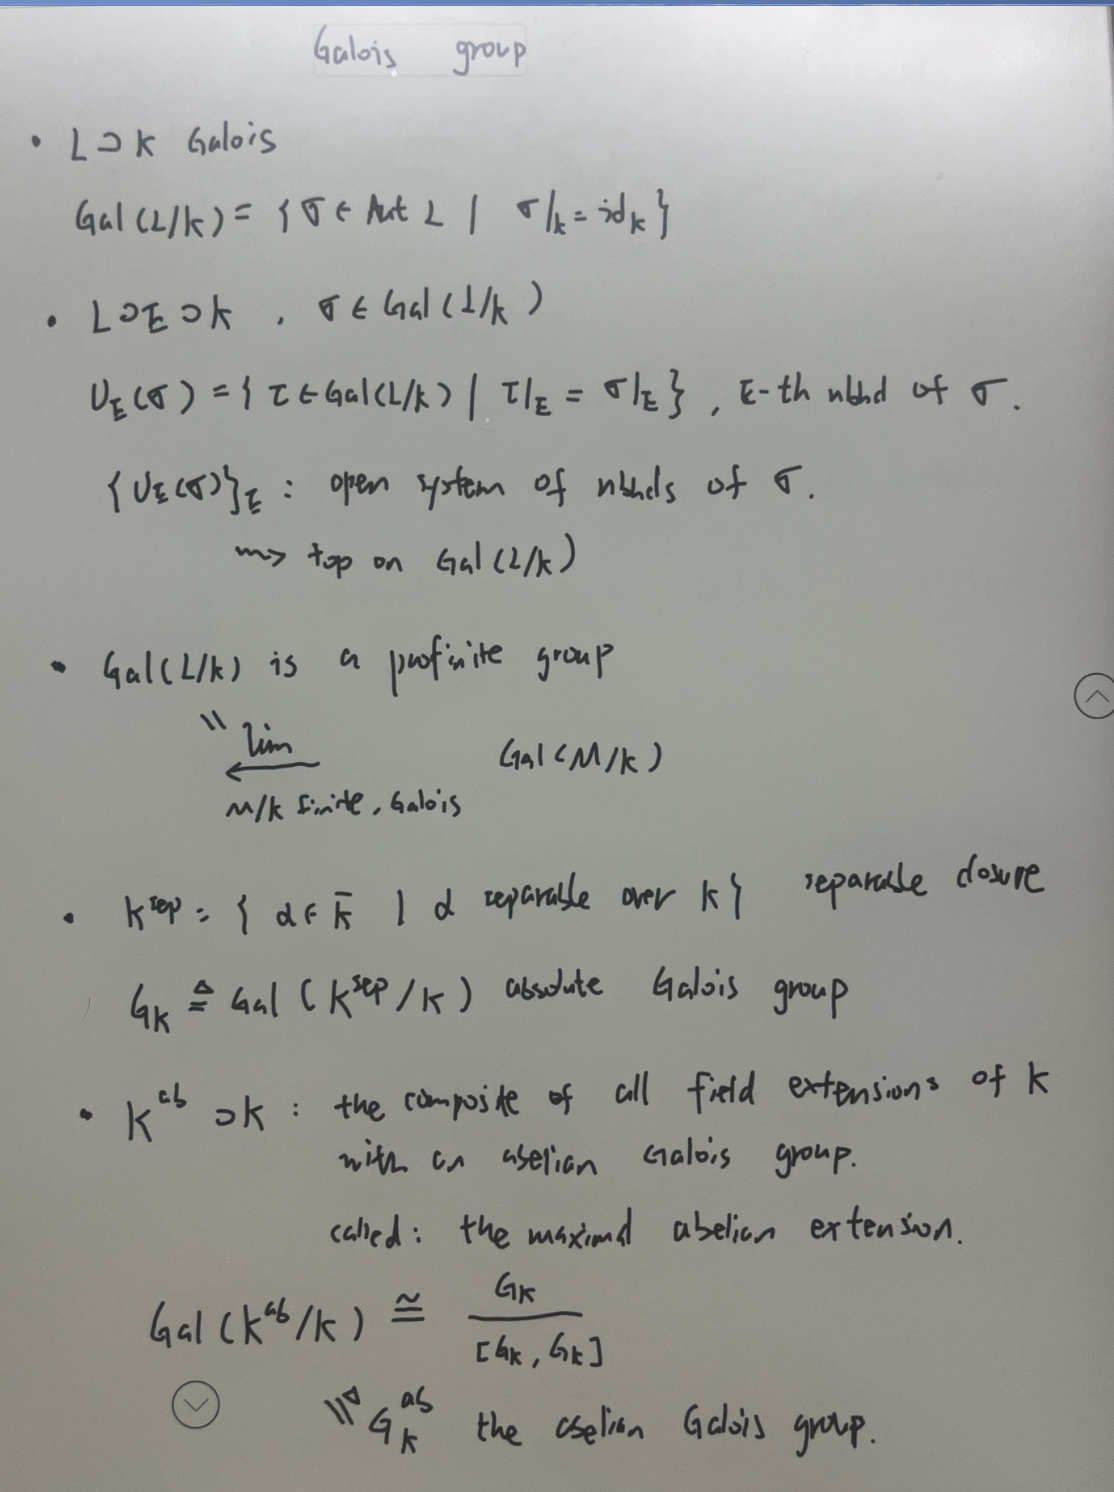 Galois group
• L⊃K Galois
Gal(L/K) = {σ ∈ Aut L | σ|_K = id_K}
• L⊃E⊃K , σ ∈ Gal(L/K)
U_E(σ) = {τ ∈ Gal(L/K) | τ|_E = σ|_E} , E-th nbhd of σ.
{U_E(σ)}_E : open system of nbhds of σ.
⇝ top on Gal(L/K)
• Gal(L/K) is a profinite group
|| lim Gal(M/K)
←
M/K finite, Galois
• K^sep = {α ∈ K̄ | α separable over K} separable closure
G_K ≜ Gal(K^sep/K) absolute Galois group
• K^ab ⊃K : the composite of all field extensions of K
with an abelian Galois group.
called : the maximal abelian extension.
Gal(K^ab/K) ≅ G_K / [G_K, G_K]
||Δ G_K^ab the abelian Galois group.